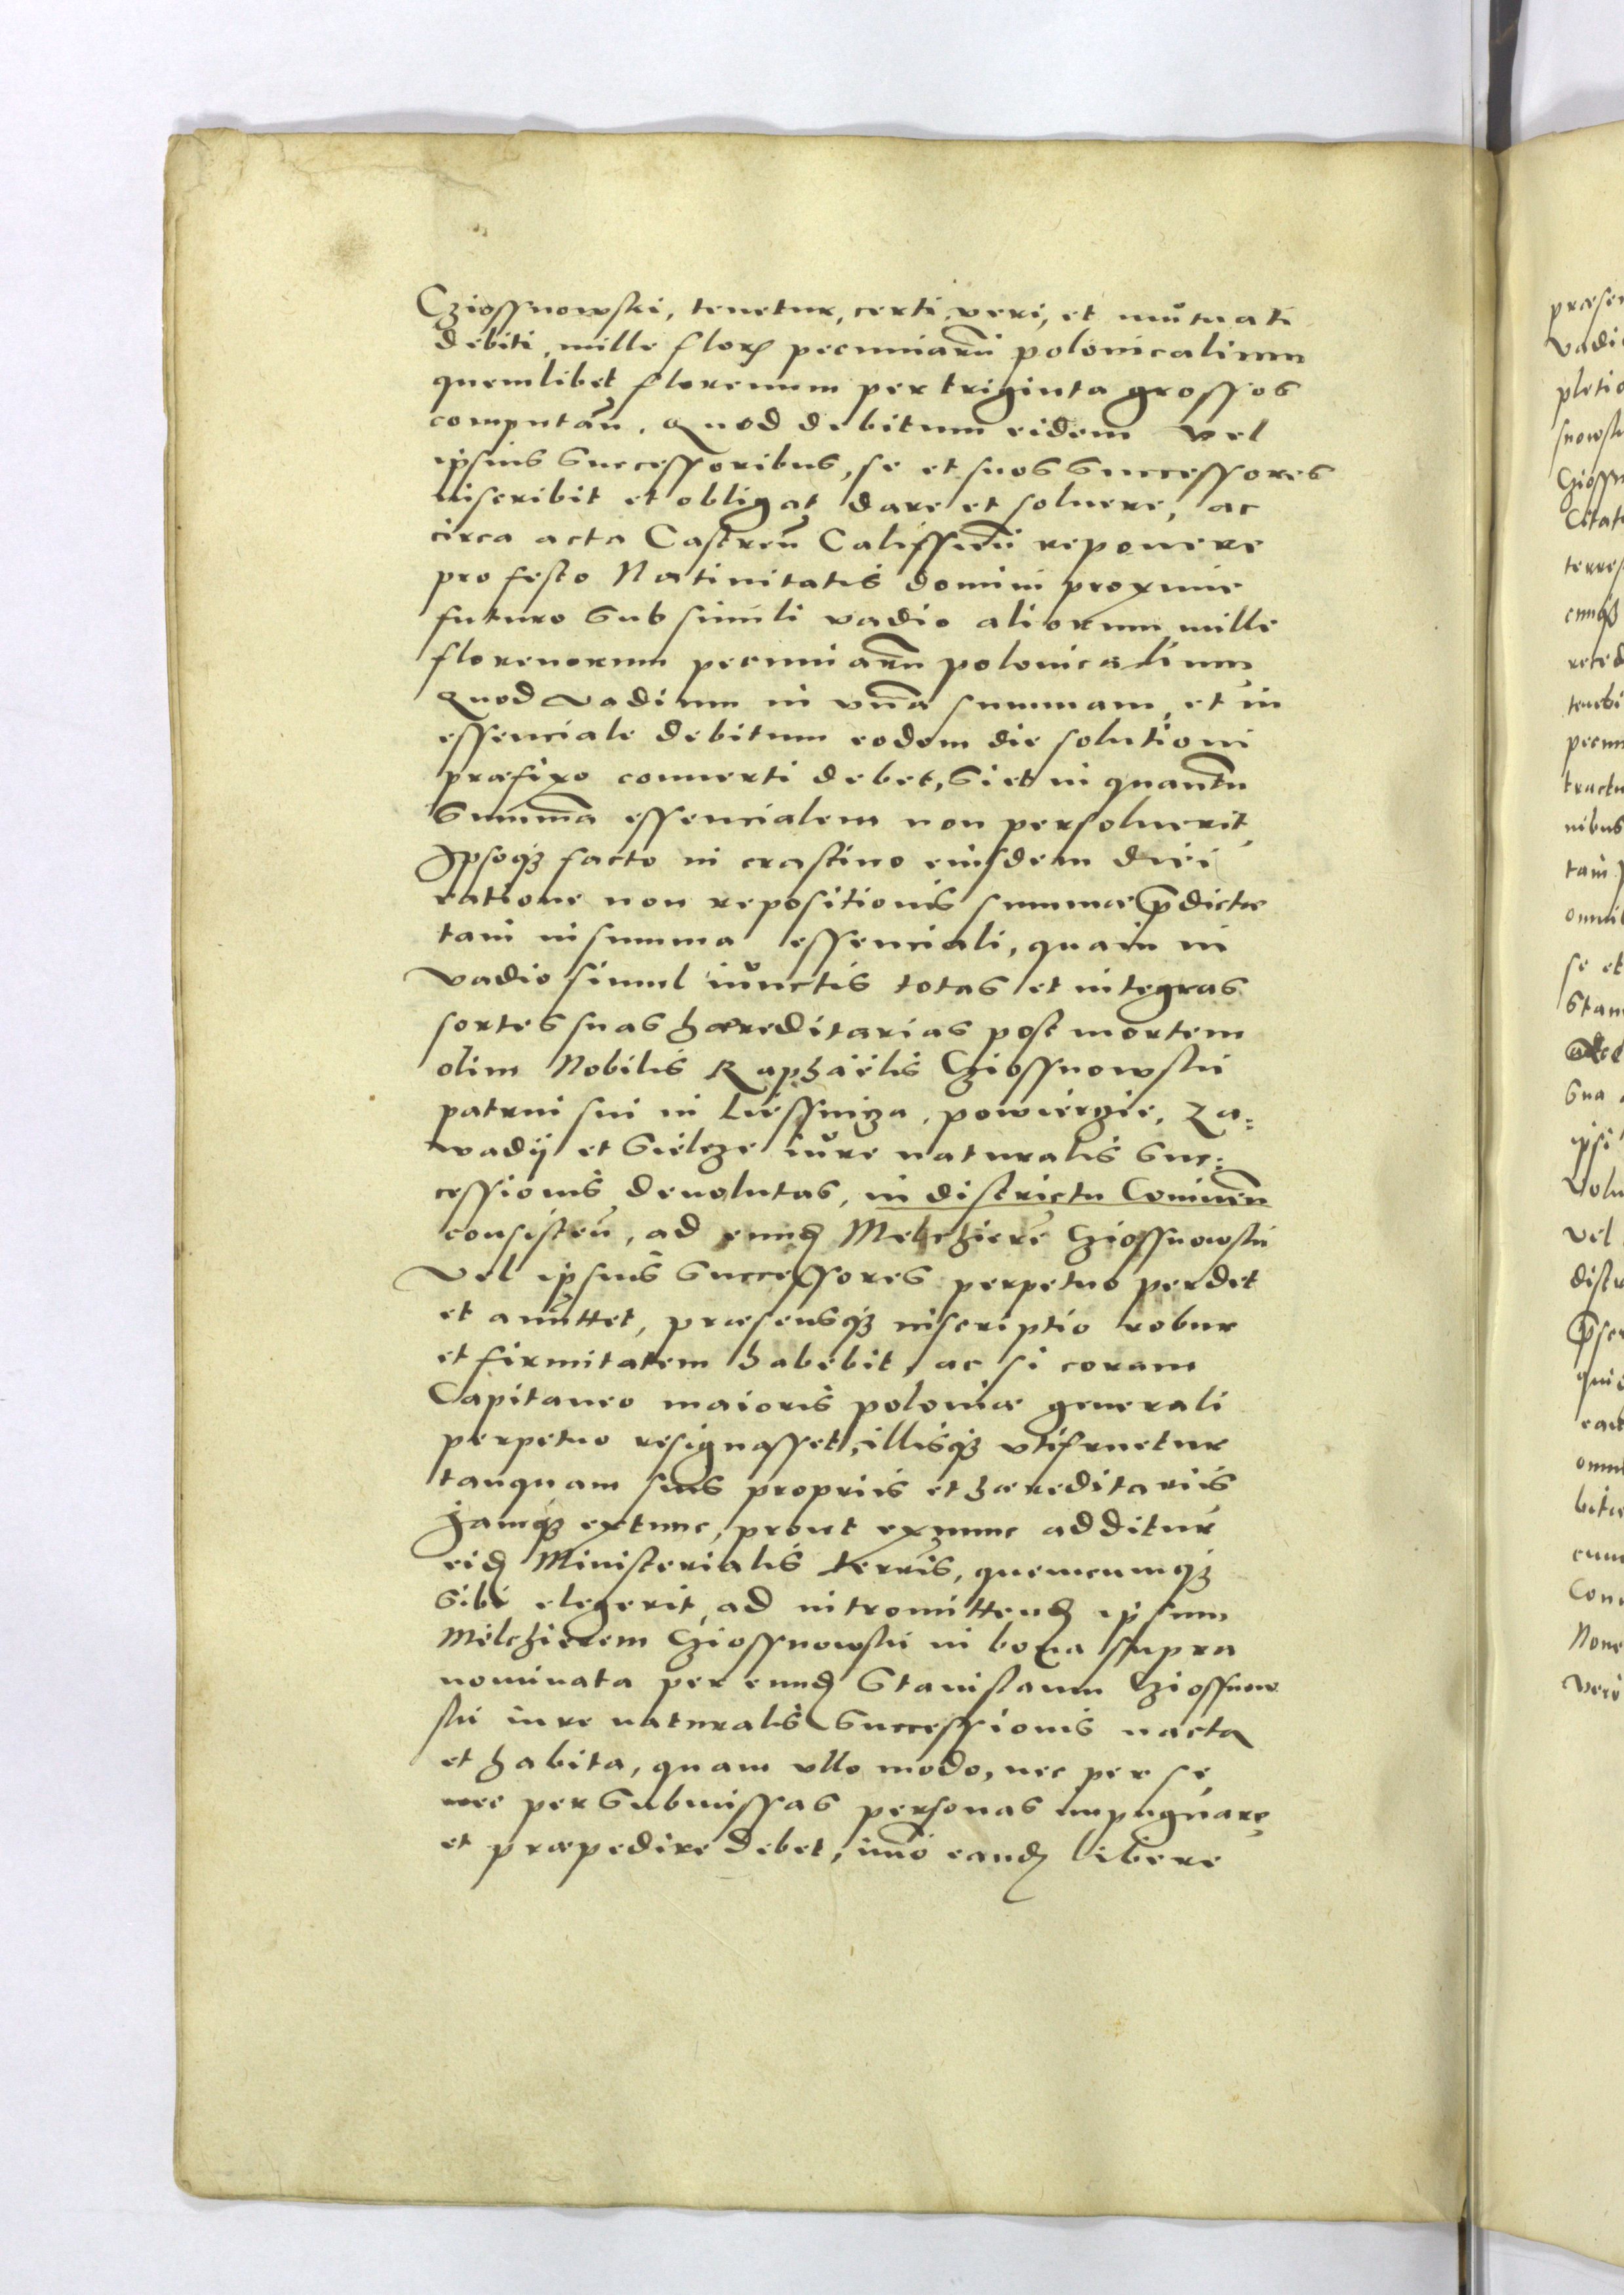 Cziossnowski, tenetur, certi, veri, et mŭtuati
debiti, mille floꝝ pecuniaꝝ̃ polonicalium
quemlibet florenum per triginta grossos
computañ. Quod debitum eidem vel
ipsius successoribus, se et suos successores
inscribit et obligat dare et soluere, ac
circa acta Castreñ Calissieñ reponere
pro festo Natiuitatis domini proxime
futuro sub simili vadio aliorum mille
florenorum pecuniarũ polonicalium,
Quod vadium in vnã summam, et in
essenciale debitum eodem die solutioni
præfixo conuerti debet, Si et in quantũ
Summã essencialem non persoluerit,
Ipsoqꝫ facto in crastino eiusdem diei
ratione non repositionis summæ p̃dictæ
tam in summa essenciali, quam in
vadio simul iŭnctis totas et integras
sortes suas hæreditarias post mortem
olim Nobilis Raphaelis Cziossnowski
patrui sui in Liessnicza, powiergie, Za⸗
wadij et Sielcze iŭre naturalis suc⸗
cessionis deuolutas, in districtu Coninẽn
consisteñ, ad eundꝫ Melchiorẽ Cziossnowski
Vel ipsius successores perpetuo perdet
et amittet, præsensqꝫ inscriptio robur
et firmitatem habebit, ac si coram
Capitaneo maioris poloniæ generali
perpetuo resignasset, illisqꝫ vtifruetur
tanquam suis propriis et hæreditariis
Jamqꝫ extunc, prout exnunc additur
eidꝫ Ministerialis terrĩs, quemcumqꝫ
sibi elegerit, ad intromittendꝫ ipsum
Melchiorem Cziossnowski in bona supra
nominata per eundꝫ Stanislaum Cziossnow
ski iure naturalis successionis nacta
et habita, quam vllo modo, nec per se,
nec per submissas personas impugnare
et præpedire debet, im̃o eandꝫ libere